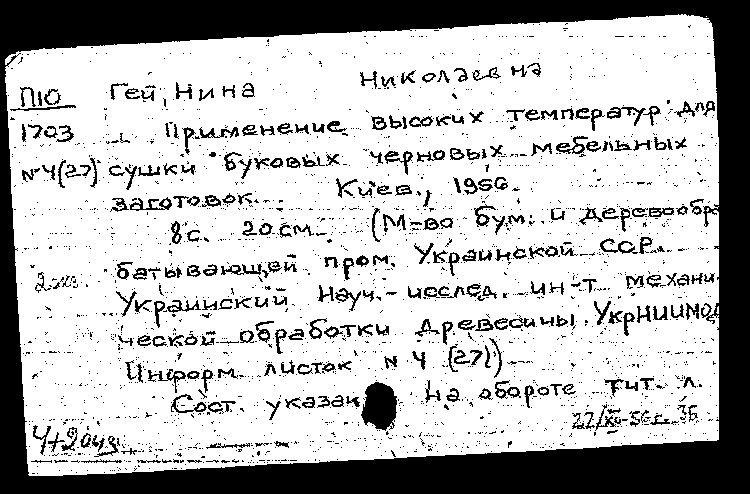 П10 Гей, Нина Николаевна
1703 Применение высоких температур для
№4(27) сушки буковых черновых мебельных
заготовок. Киев, 1956.
8с. 20см. (М-во бум. и деревообра-
2 экз. батывающей пром. Украинской ССР.
Украинский Науч.-исслед. ин-т механи-
ческой обработки древесины. УкрНИИМОД
Информ. листок № 4 (27))
Сост. указан на обороте тит. л.
27/XII-56г. ЗБ